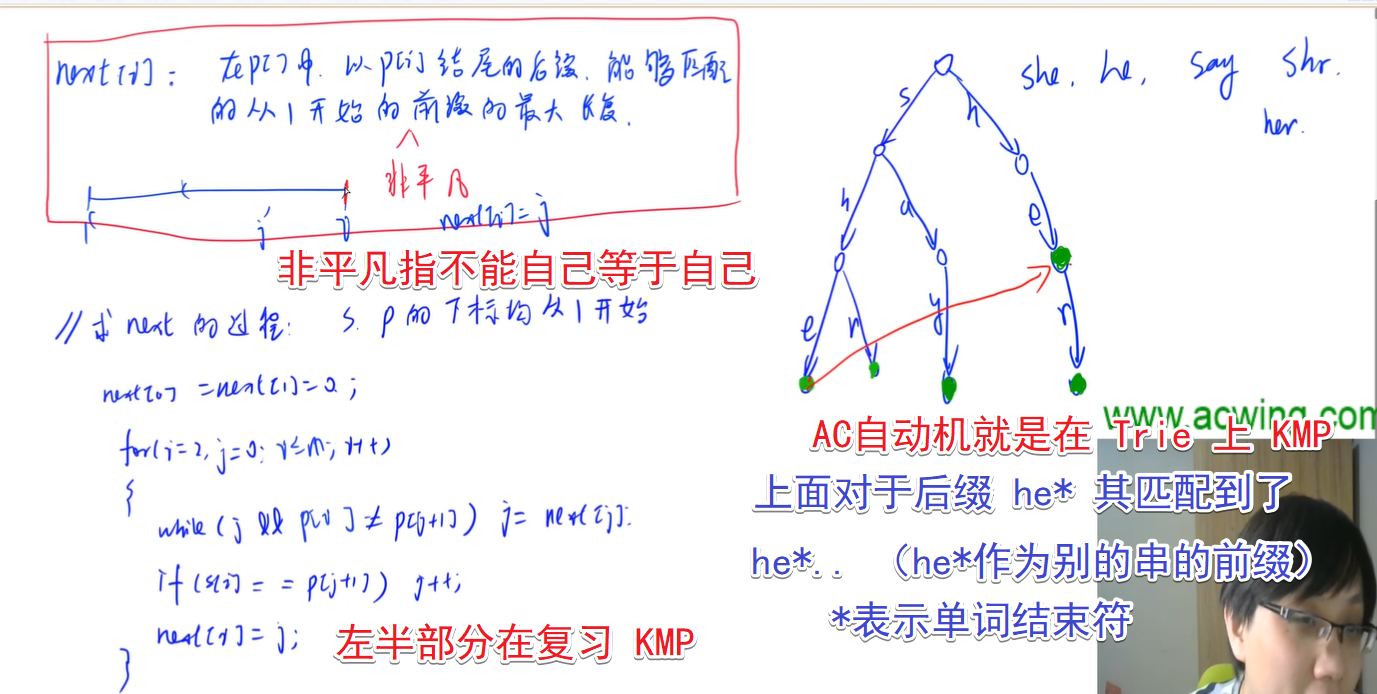 next[i]: 在p[]中，以p[i]结尾的后缀，能够匹配
的从1开始的前缀的最大长度.
非平凡
1 j i next[i]=j
非平凡指不能自己等于自己
//求next的过程: s, p的下标均从1开始
next[0]=next[1]=0;
for(i=2, j=0; i≤m; i++)
{
while(j && p[i]≠p[j+1]) j=next[j];
if(s[i]==p[j+1]) j++;
next[i]=j;
}
左半部分在复习 KMP
she, he, say shr.
her.
s h
h a e
e r y r
www.acwing.com
AC自动机就是在 Trie 上 KMP
上面对于后缀 he* 其匹配到了
he*.. （he*作为别的串的前缀）
*表示单词结束符